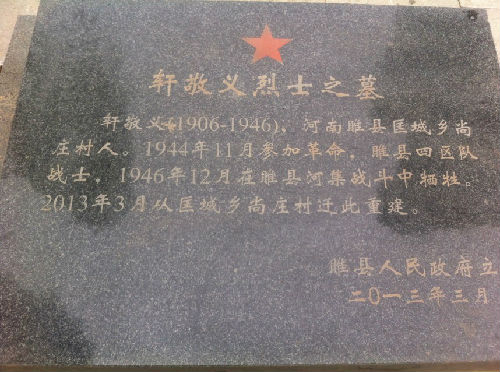 轩敬义烈士之墓
轩敬义(1906-1946)，河南睢县匡城乡尚
庄村人。1944年11月参加革命，睢县四区队
战士，1946年12月在睢县河集战斗中牺牲。
2013年3月从匡城乡尚庄村迁此重建。
睢县人民政府立
二〇一三年三月